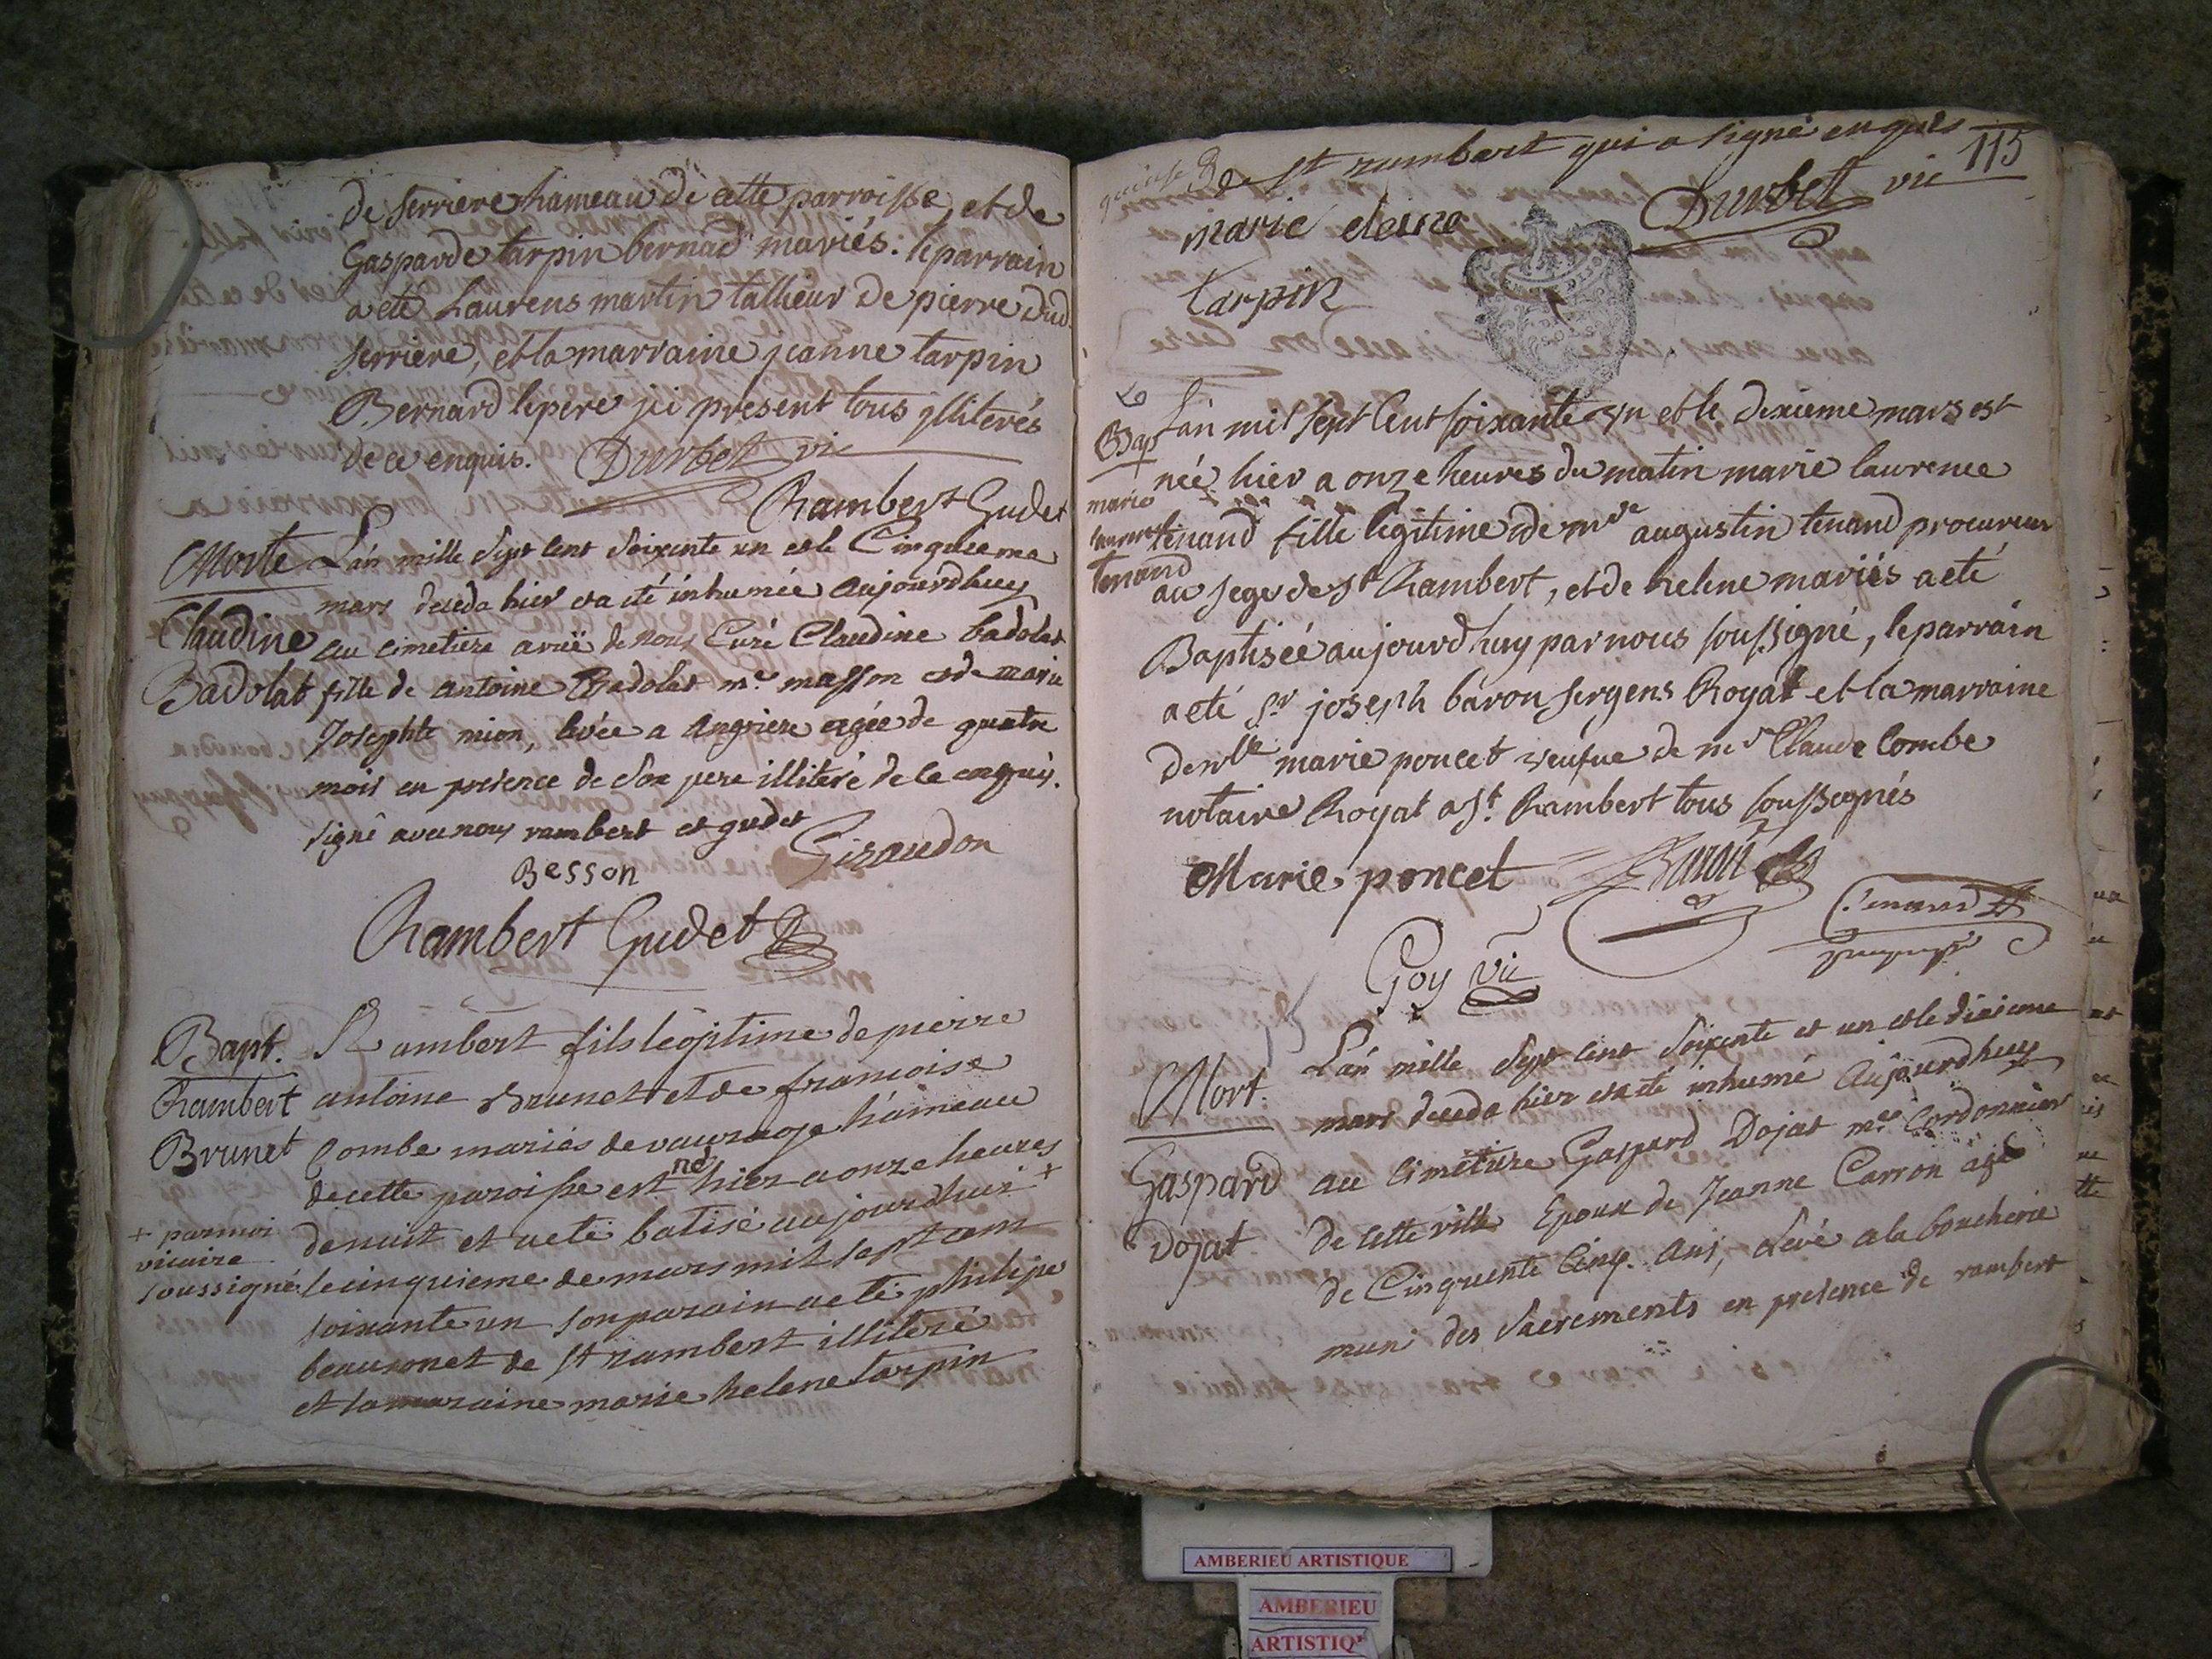 de serriere hameau de cette parroisse, et de
Gasparde tarpin bernad mariés: le parrain
a eté Laurens martin tallieur de pierre dud.
serriere, et la marraine jeanne tarpin
Bernard le pere ici present tous ylliterés
de ce enquis. Durbet vic
Rambert Gudet
Morte L'an mille Sept cent Soixente un et le Cinquieme
mars deceda hier et a été inhumée aujourdhuy
Claudine au cimetiere avuë de nous Curé Claudine badolat
Badolat fille de antoine Badolat mre masson et de marie
Josephte mion, levée a Angriere agée de quatre
mois en presence de Son pere illiteré de ce enquis.
signé avec nous rambert et gudet
Besson Giraudon
Rambert Gudet
Bapt. Rambert fils légitime de pierre
Rambert antoine Brunet et de francoise
Brunet Combe mariés de vaurage hameau
de cette paroisse est né hier a onze heures
de nuit et a eté batisé aujourdhui +
+ par moi
vicaire
soussigné
le cinquieme de mars mil sept cent
soixante un son parain a eté philipe
beauronet de st rambert illiteré
et la maraine marie helene tarpin
115
de st rambert qui a signé enquis
Durbet vic
marie eleine
tarpin
Bap L'an mil sept Cent soixante un et le dixieme mars est
née hier a onze heures du matin marie laurence
marie
laurence
tenand
tenand fille legitime de mre augustin tenand procureur
au sege de St Rambert, et de helene mariés a eté
Baptisée aujourdhuy par nous soussigné, le parrain
a eté Sr joseph baron sergens Royat et la marraine
demlle marie poncet veufue de mr Claude Combe
notaire Royat a St. Rambert tous soussegnés
Marie poncet Baron
Tenand
Goy vic
Mort. L'an mille Sept cent Soixente et un et le dixieme
mars deceda hier et a été inhumé aujourdhuy
Gaspard au cimetiere Gaspard Dojat mre Cordonnier
Dojat de cette ville Epoux de Jeanne Carron agé
de Cinquente Cinq. ans, Levé a la boucherie
muni des Sacrements en presence de rambert
AMBERIEU ARTISTIQUE
AMBERIEU
ARTISTIQ